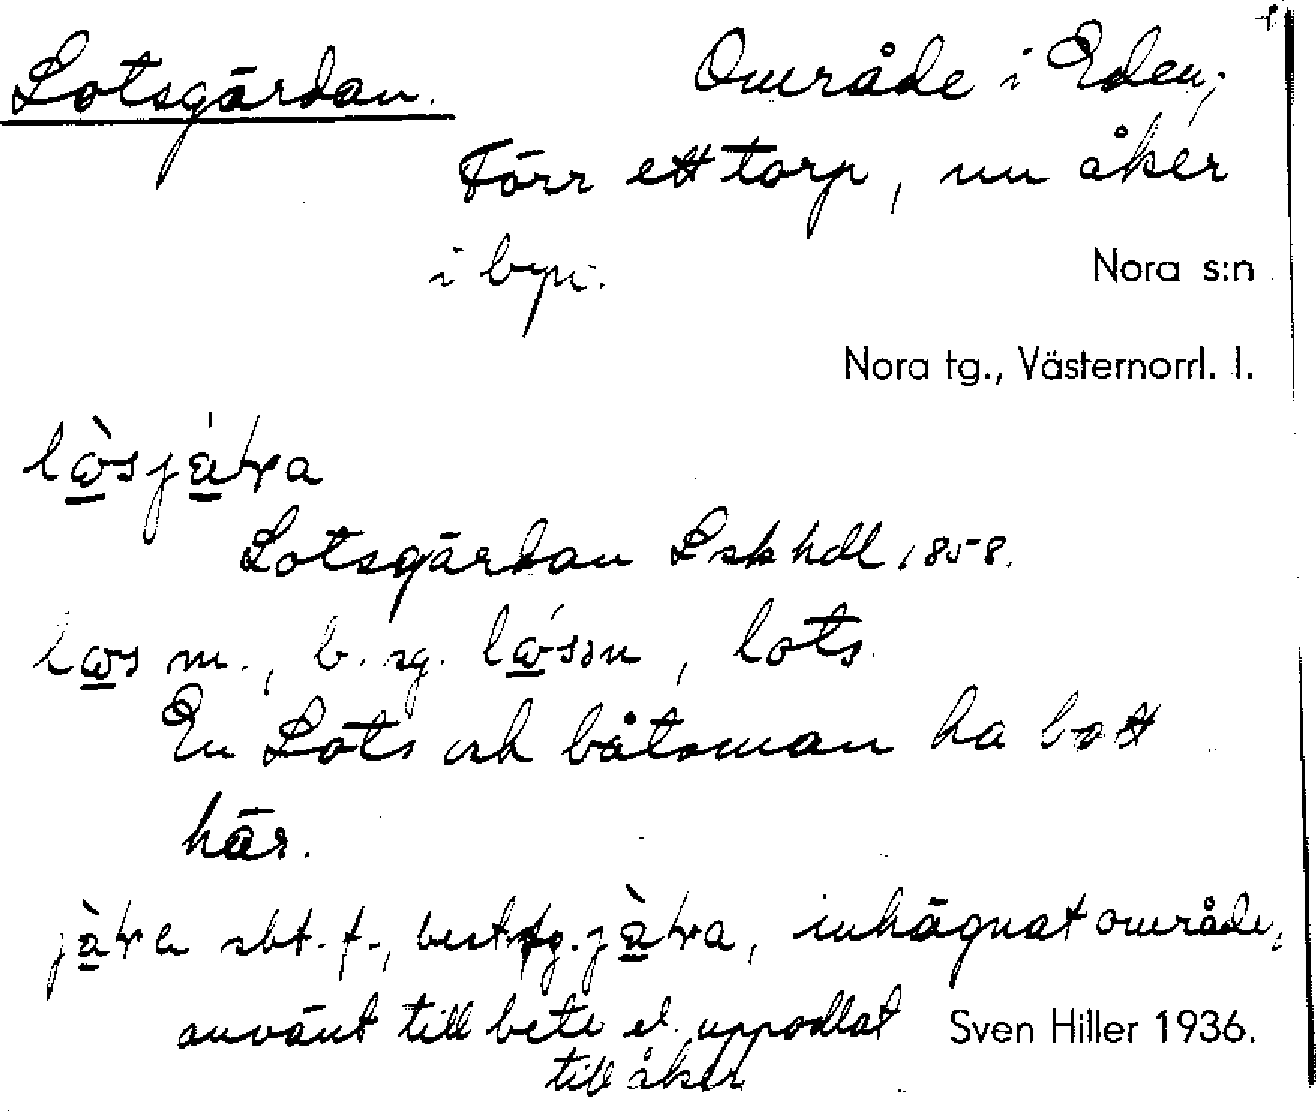 Lotsgärdan.
Område i Eden,
Förr ett torp, nu åker
i byn.
Nora s:n
Nora tg., Västernorrl. l.
Lotsgärdan Lskhdl 1858.
m., b. sg. lots.
En Lots och båtsman ha bott
här.
sbt. f., best. sg. inhägnat område,
använt till bete el. uppodlat
till åker
Sven Hiller 1936.